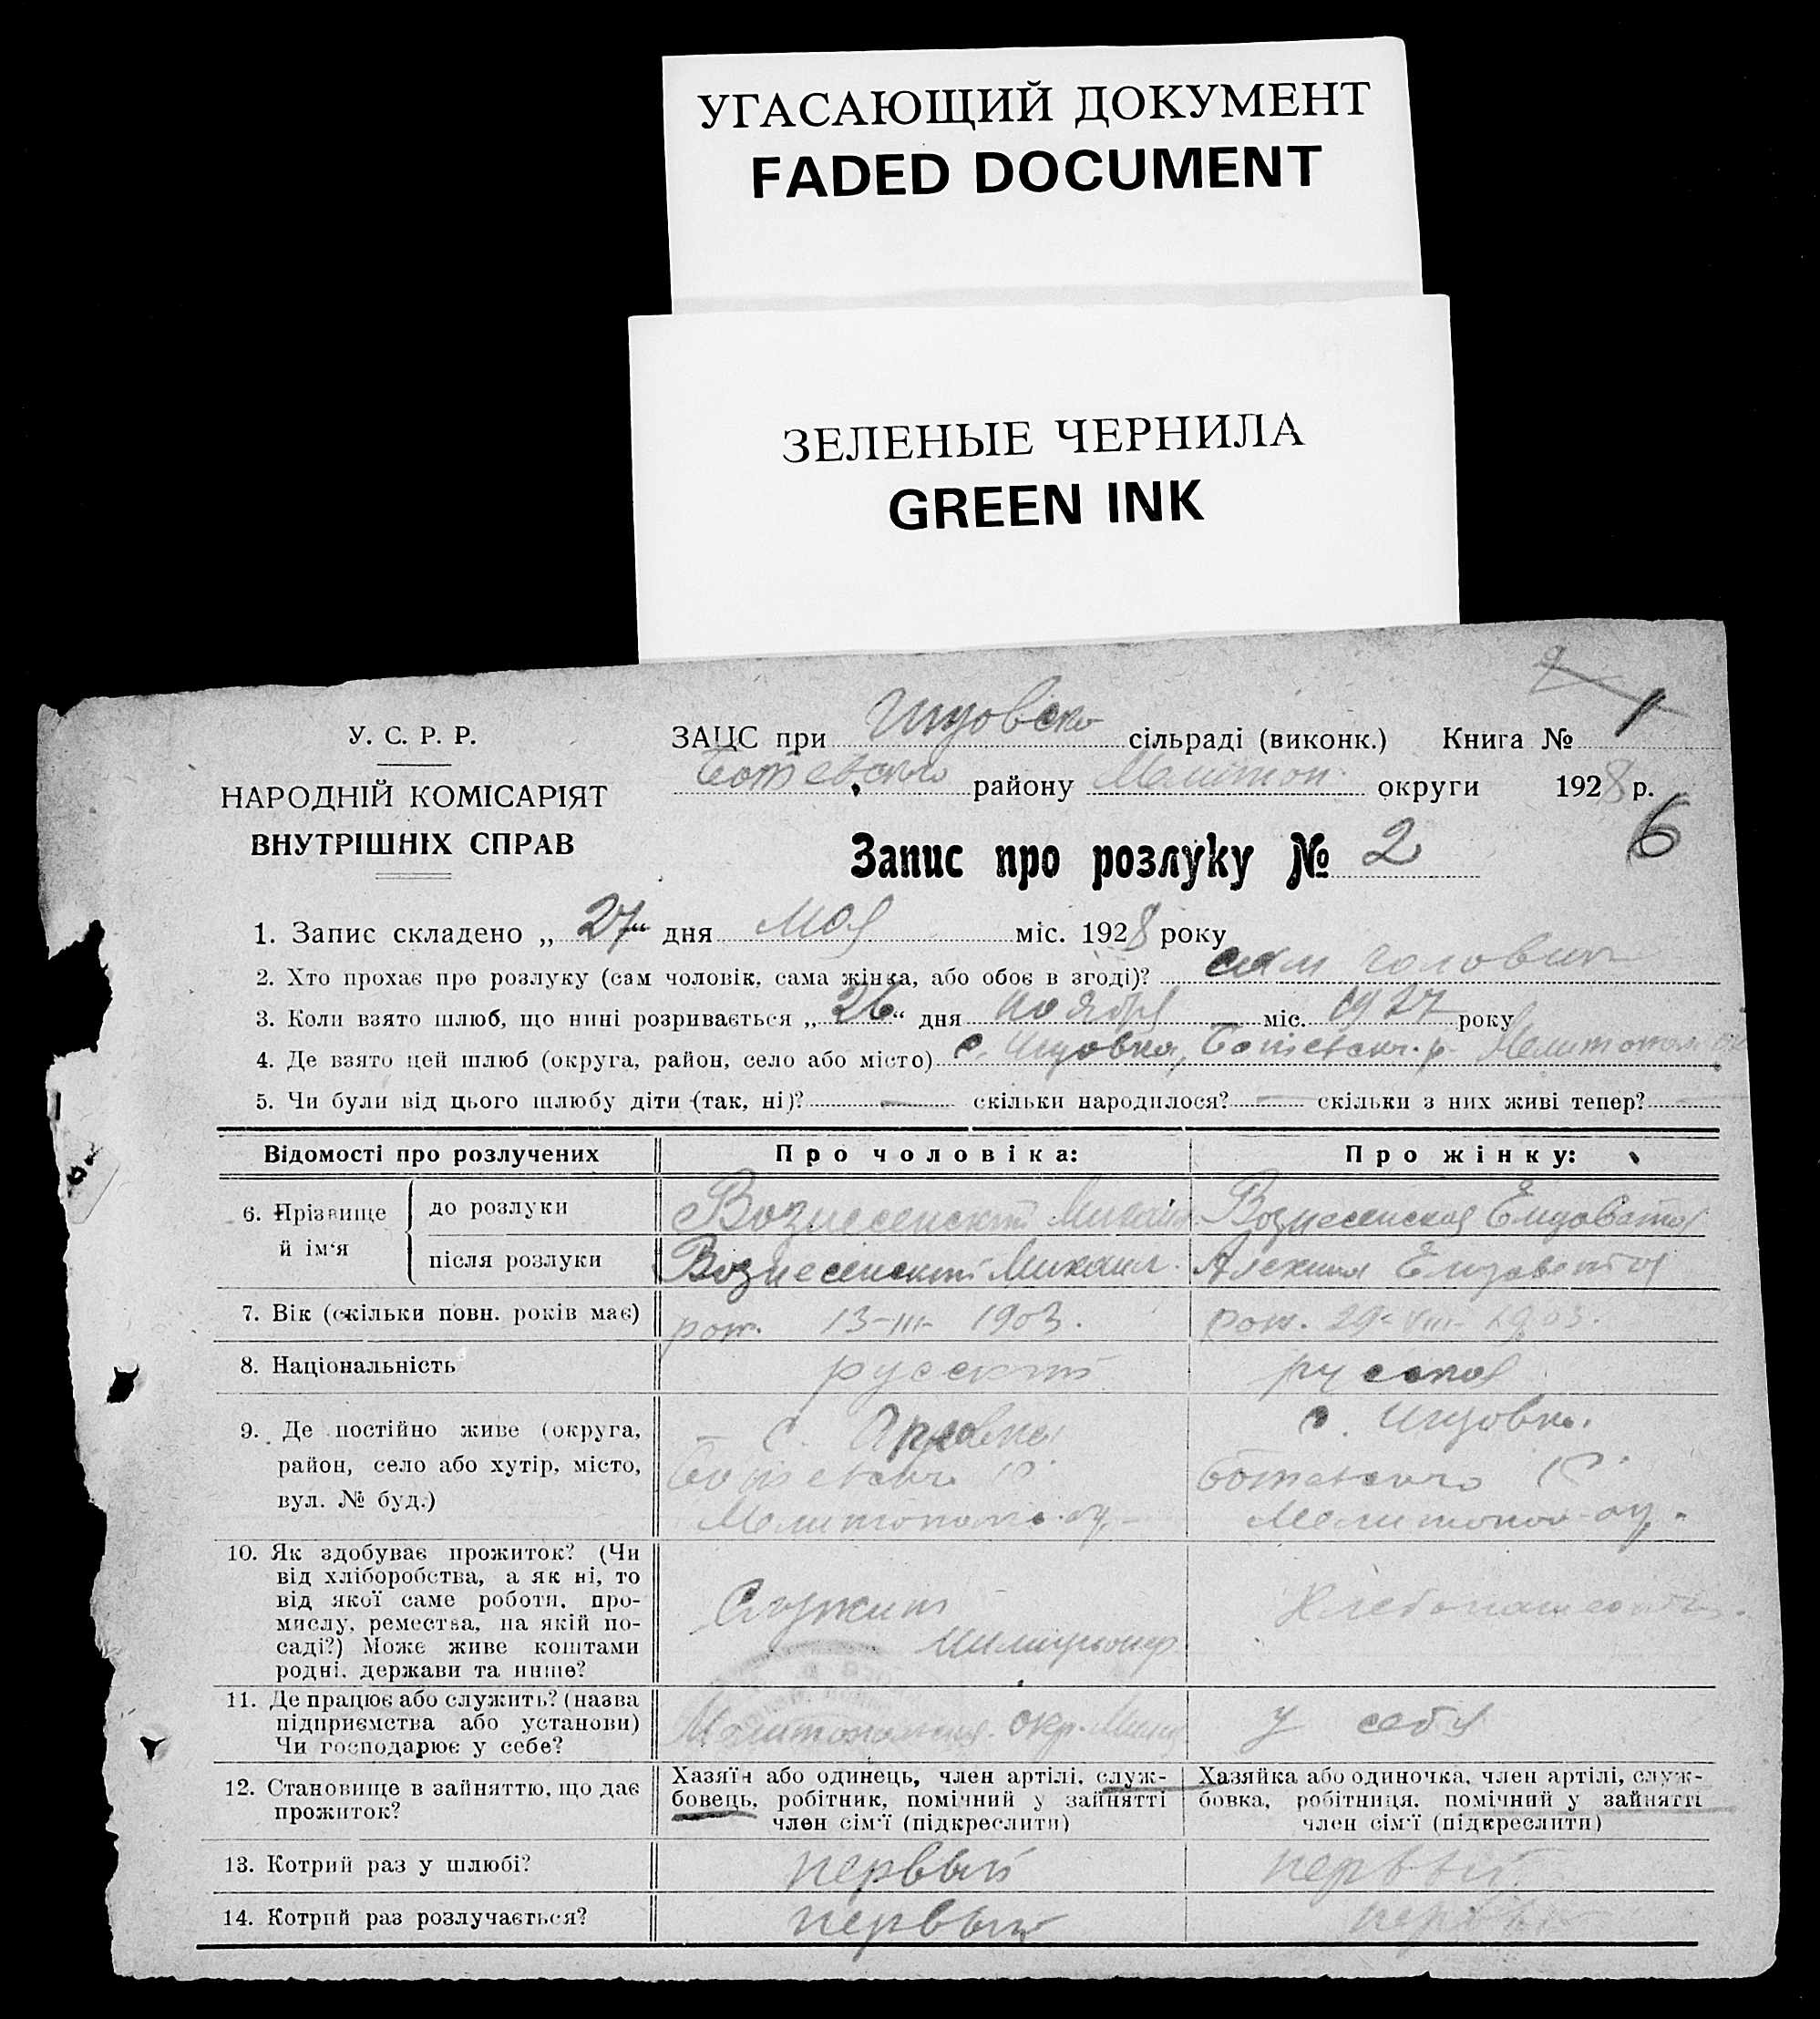 УГАСАЮЩИЙ ДОКУМЕНТ
FADED DOCUMENT
ЗЕЛЕНЫЕ ЧЕРНИЛА
GREEN INK
1
У. С. Р. Р.
НАРОДНІЙ КОМІСАРІЯТ
ВНУТРІШНІХ СПРАВ
ЗАЦС при сільраді (виконк.) Книга №
району Мелітоп. округи 1928 р.
Запис про розлуку № 2
6
1. Запис складено „ 27“ дня мая міс. 1928 року
2. Хто прохає про розлуку (сам чоловік, сама жінка, або обоє в згоді)? сам
3. Коли взято шлюб, що нині розривається „ 26 “ дня ноября міс. 1927 року
4. Де взято цей шлюб (округа, район, село або місто) с.
5. Чи були від цього шлюбу діти (так, ні)? — скільки народилося? — скільки з них живі тепер? —
Відомості про розлучених
Про чоловіка:
Про жінку:
6. Прізвище й ім'я
до розлуки
Вознесенский Михаил
Вознесенская Елизавета
після розлуки
Вознесенский Михаил
Елизавета
7. Вік (скільки повн. років має)
13-III- 1903.
29-VIII- 1903.
8. Національність
русский
русская
9. Де постійно живе (округа,
район, село або хутір, місто,
вул. № буд.)
с.
с.
10. Як здобуває прожиток? (Чи
від хліборобства, а як ні, то
від якої саме роботи, про-
мислу, ремества, на якій по-
саді?) Може живе коштами
родні, держави та инше?
Служит
милиционер
Хлебопашество
11. Де працює або служить? (назва
підприємства або установи)
Чи господарює у себе?
окр.
у себя
12. Становище в зайняттю, що дає
прожиток?
Хазяїн або одинець, член артілі, служ-
бовець, робітник, помічний у зайнятті
член сім'ї (підкреслити)
Хазяйка або одиночка, член артілі, служ-
бовка, робітниця, помічний у зайнятті
член сім'ї (підкреслити)
13. Котрий раз у шлюбі?
первый
первый
14. Котрий раз розлучається?
первый
первый